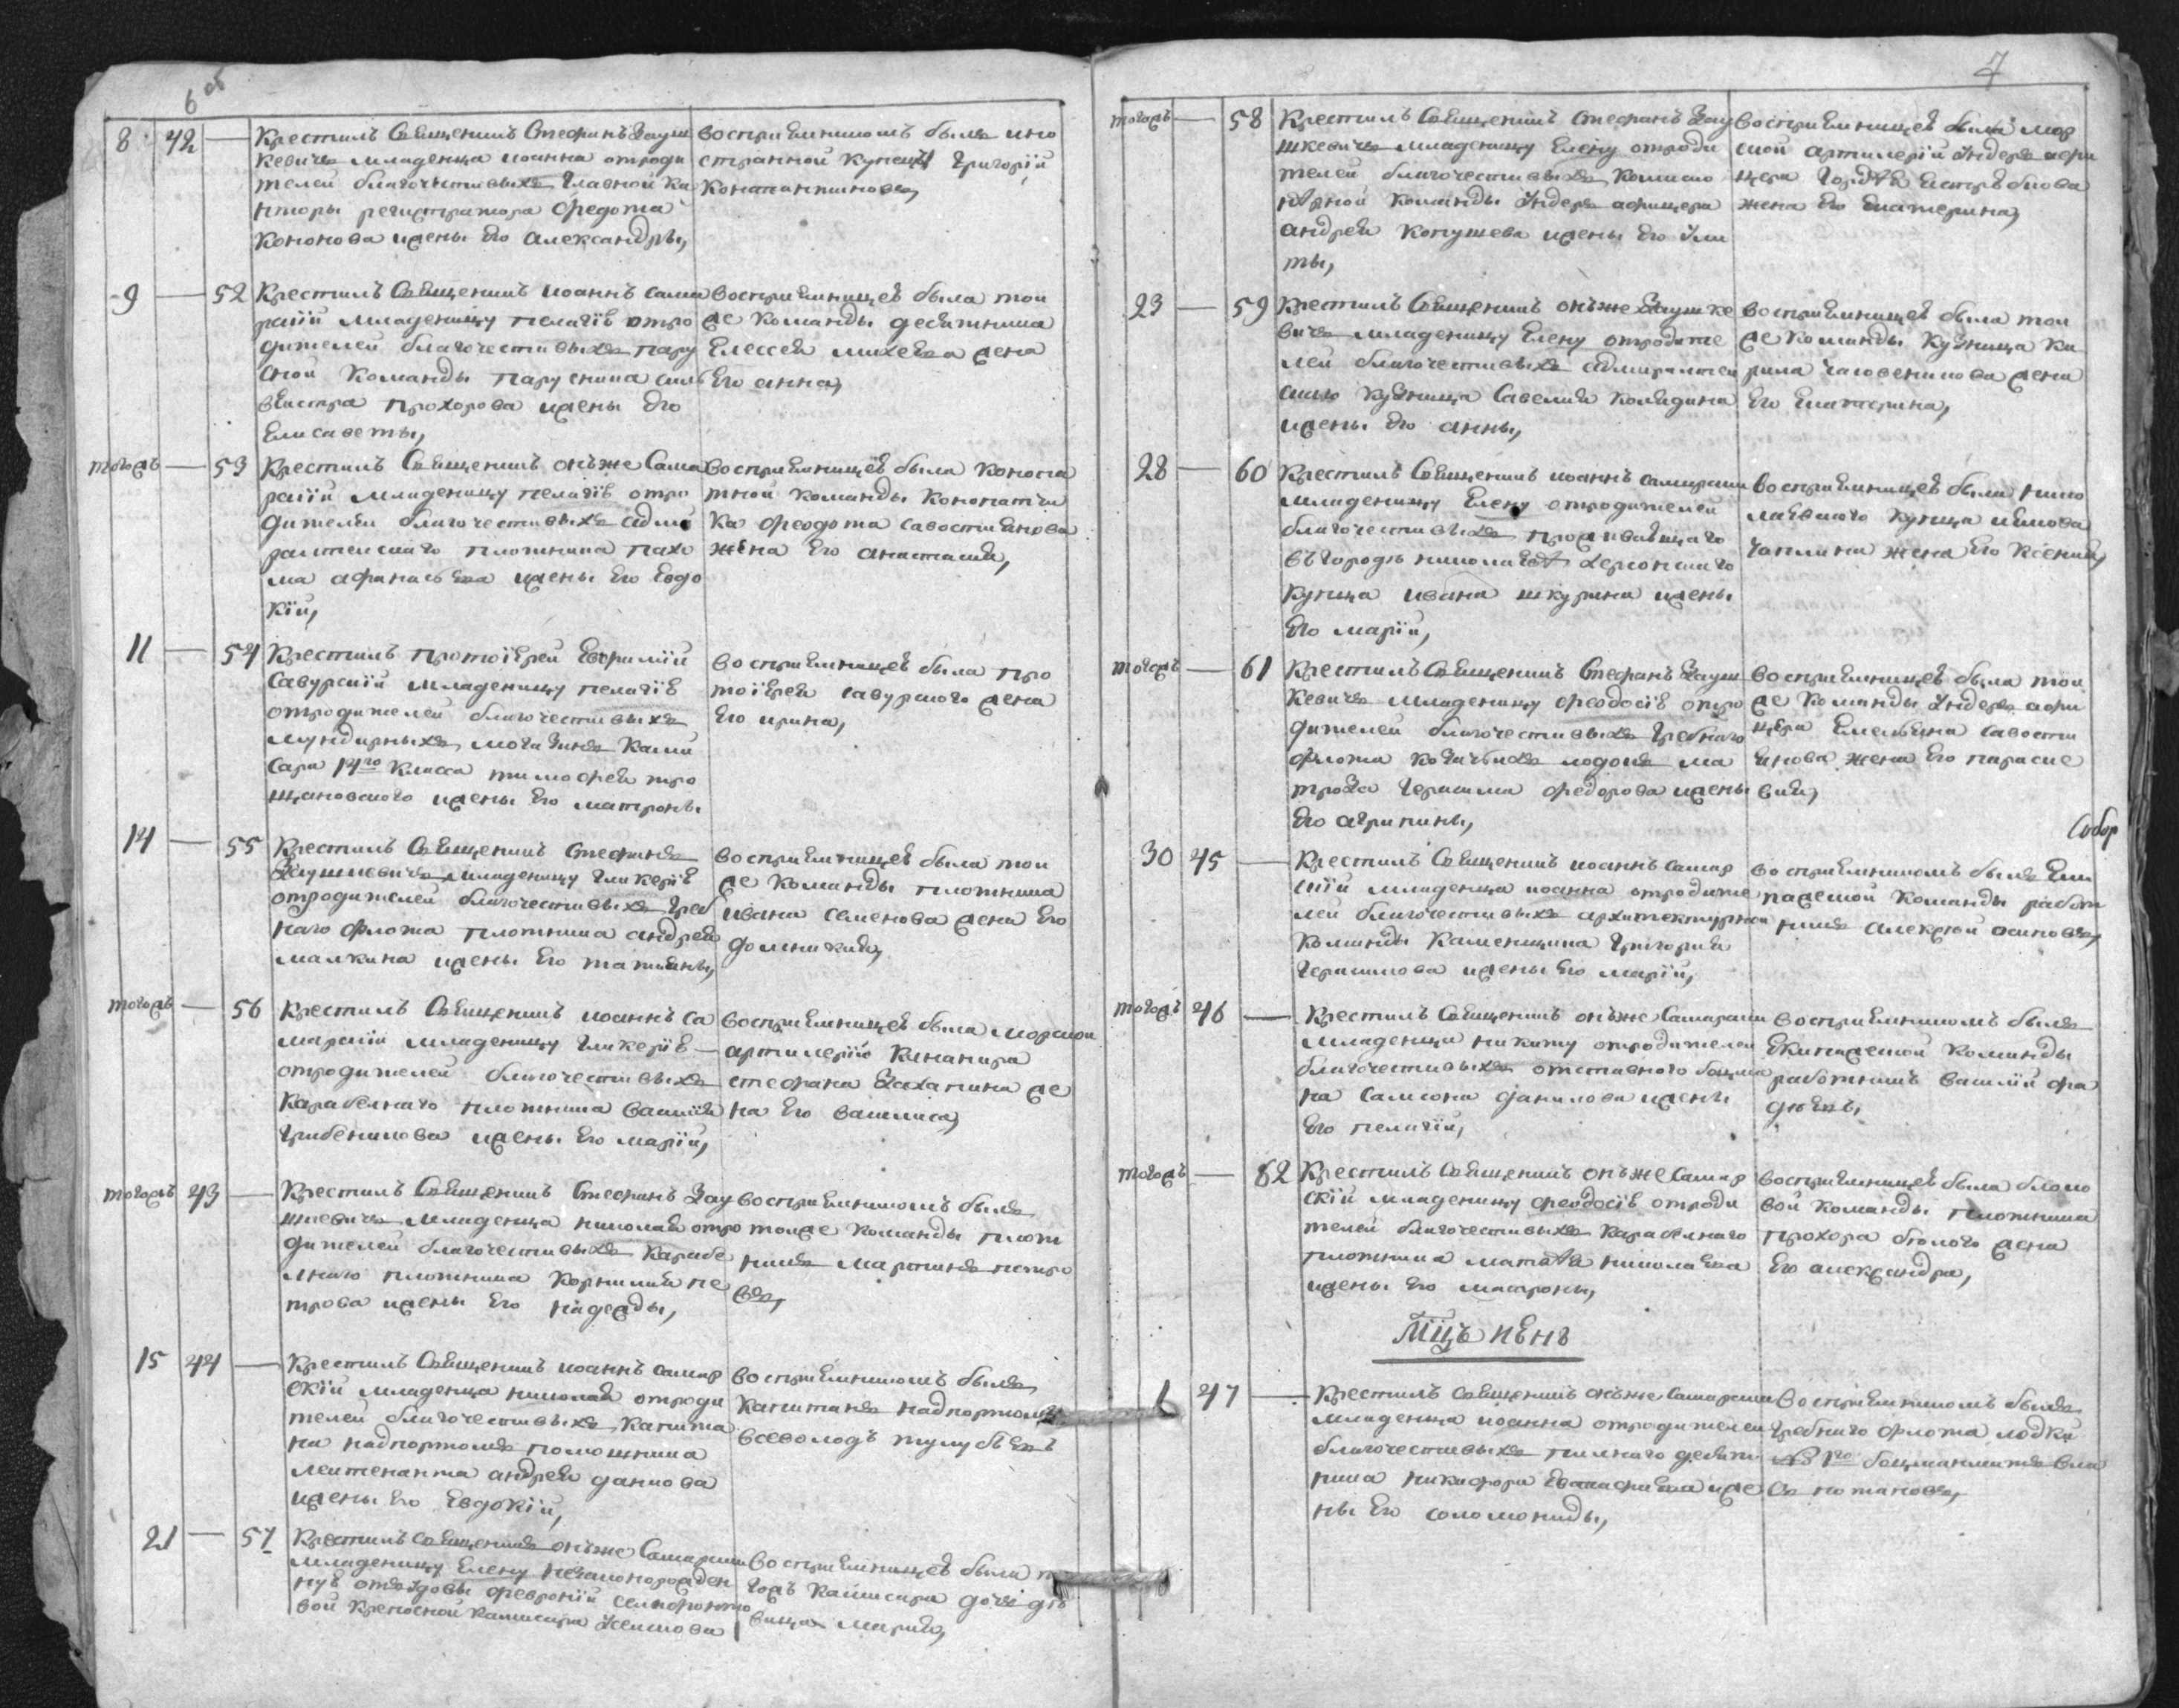 6 об
8 42 — Крестилъ Священникъ Стефанъ Зауш
кевичъ младенца иоанна отроди
телей благочестивыхъ главной ка
нторы регистратора Федота
Кононова ижены его александры,
восприемникомъ былъ ино
странной купецъ григорїй
Константиновъ,
9 — 52 Крестилъ Священникъ иоаннъ сама
рскїй младеницу пелагїю отро
дителей благочестивыхъ пару
сной команды парусника сил
вестра прохорова ижены его
Елисаветы,
восприемницею была той
же команды десятника
Елессея михеева жена
его анна,
тогожъ — 53 Крестилъ Священникъ онъже Сама
рскїй младеницу пелагїю отро
дителей благочестивыхъ адми
ралтейскаго плотника пахо
ма афанасьева ижены его Евдо
кїи,
восприемницею была конопа
тной команды конопатчи
ка феодота савостиянова
жена его анастасия,
11 — 54 Крестилъ протоїерей Евфимїй
Савурскїй младеницу пелагїю
отродителей благочестивыхъ
мундирныхъ магазиновъ коми
сара 14го класса тимофея тро
цановскаго ижены его матроны
восприемницею была про
тоїерея савурскаго жена
его ирина,
14 — 55 Крестилъ Священникъ Стефанъ
Заушкевичъ младеницу гликерїю
отродителей благочестивыхъ греб
наго флота плотника андрея
малкина ижены его татияны,
восприемницею была той
же команды плотника
ивана семенова жена его
домникия,
тогожъ — 56 Крестилъ Священникъ иоаннъ са
марскїй младеницу гликерїю
отродителей благочестивыхъ
карабелнаго плотника василия
грибеникова ижены его марїи,
восприемницею была морской
артилерїи канонира
стефана захапкина же
на его василиса,
тогожъ 43 — Крестилъ Священникъ Стефанъ Зау
шкевичъ младенца николая отро
дителей благочестивыхъ карабе
лнаго плотника корнилия пе
трова ижены его надежды,
восприемникомъ былъ
тойже команды плот
никъ мартинъ петро
въ,
15 44 — Крестилъ Священникъ иоаннъ самар
скїй младенца николая отроди
телей благочестивыхъ капита
на надпортомъ помощника
лейтенанта андрея данкова
ижены его Евдокїи,
восприемникомъ былъ
капитанъ надпортомъ
всеволодъ тулубьевъ
21 — 57 Крестилъ священникъ онъже Самарский
младеницу Елену незаконорожден
ную отвдовы февронїи
вой крепосной камисара
восприемницею была
камисара дочь дѣ
вица мария,
7
тогожъ — 58 Крестилъ Священникъ стефанъ Зау
шкевичъ младеницу Елену отроди
телей благочестивыхъ
команды ундеръ афицера
андрея копушева ижены его ули
ты,
восприемницею была мор
ской артилерїи ундеръ афи
цера гордѣя
жена его Екатерина,
23 — 59 Крестилъ Священникъ онъже Заушке
вичъ младеницу Елену отродите
лей благочестивыхъ адмиралтей
скаго кузнеца Савелия колядина
ижены его анны,
восприемницею была той
же команды кузнеца ки
рила человечикова жена
его Екатерина,
28 — 60 Крестилъ Священникъ иоаннъ самарский
младеницу Елену отродителей
благочестивыхъ проживающаго
въгородѣ николаевѣ херсонскаго
купца ивана шкурина ижены
его марїи,
восприемницею была нико
лаевскаго купца иякова
чаплина жена его Ксения,
тогожъ — 61 Крестилъ Священникъ Стефанъ Зауш
кевичъ младеницу феодосїю отро
дителей благочестивыхъ гребнаго
флота казачьихъ лодокъ ма
троза герасима федорова ижены
его агрипины,
восприемницею была той
же команды ундеръ афи
цера Емельяна савости
янова жена его параске
вия,
Собор
30 45 — Крестилъ Священникъ иоаннъ самар
скїй младенца иоанна отродите
лей благочестивыхъ архитектурной
команды каменщика григория
герасимова ижены его марїи,
восприемникомъ былъ Еки
пажеской команды работ
никъ алексей осиповъ,
тогожъ 46 — Крестилъ Священникъ онъже Самарский
младенца никиту отродителей
благочестивыхъ отставного боцма
на самсона данилова ижены
его пелагїи,
восприемникомъ былъ
Екипажеской команды
работникъ василїй фа
дѣевъ,
тогожъ — 62 Крестилъ Священникъ онъже Самар
скїй младеницу феодосїю отроди
телей благочестивыхъ карабелнаго
плотника матвѣя николаева
ижены его матроны,
восприемницею была блоко
вой команды плотника
прохора бѣлого жена
его александра,
Мцъ Июнь
1 47 — Крестилъ священникъ онъже Самарский
младенца иоанна отродителей
благочестивыхъ пилнаго десят
ника никифора Евстафиева иже
ны его соломониды,
восприемникомъ былъ
гребнаго флота лодки
№ 1го боцманматъ вла
съ потаповъ,